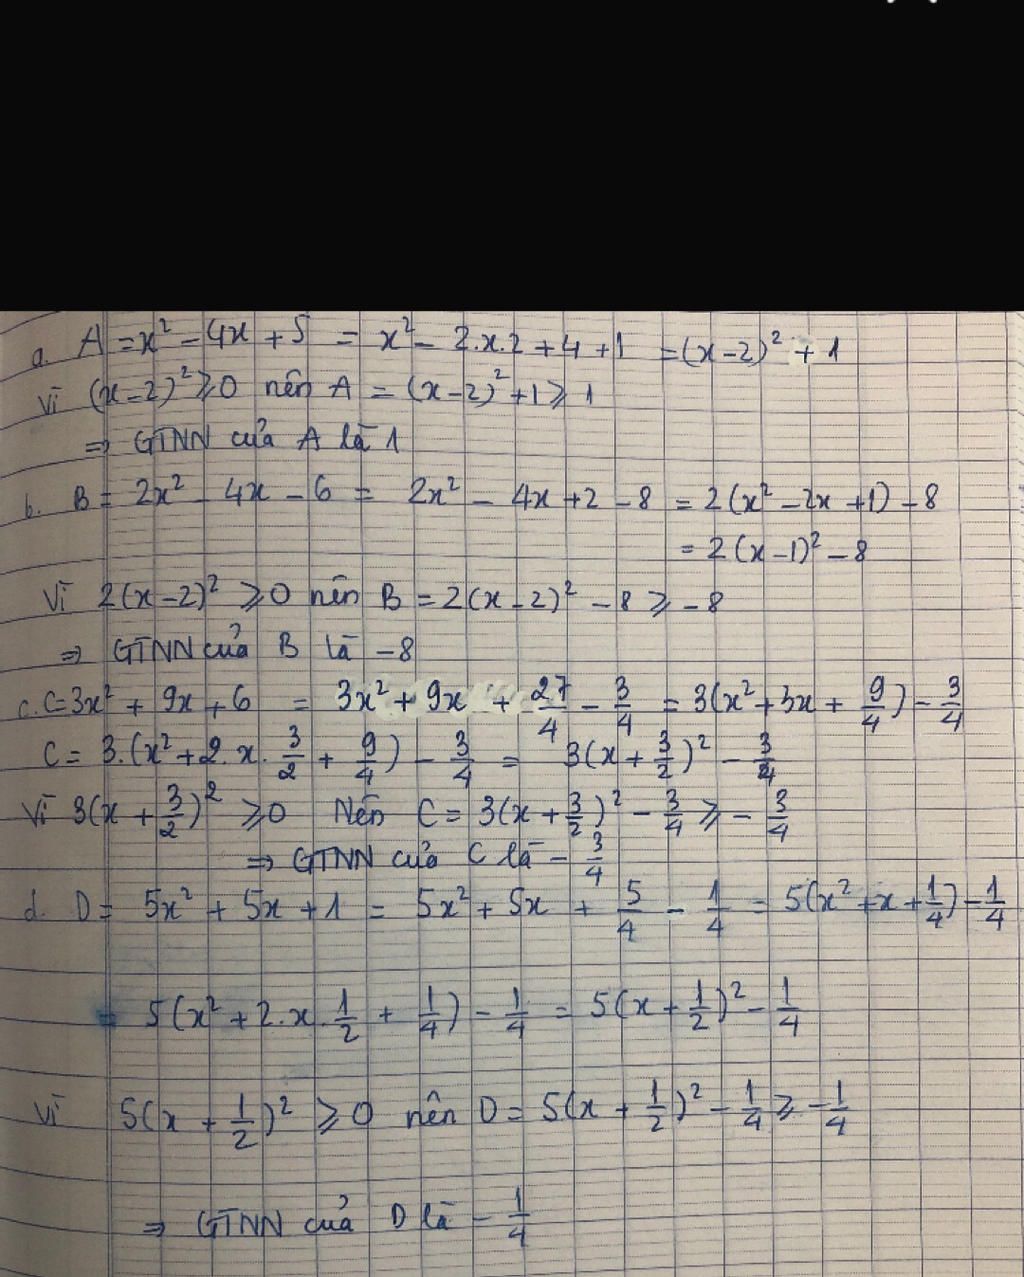 a. A = x² - 4x + 5 = x² - 2.x.2 + 4 + 1 = (x-2)² + 1
Vì (x-2)² ⩾ 0 nên A = (x-2)² + 1 ⩾ 1
⇒ GTNN của A là 1
b. B = 2x² - 4x - 6 = 2x² - 4x + 2 - 8 = 2(x² - 2x + 1) - 8
= 2(x-1)² - 8
Vì 2(x-2)² ⩾ 0 nên B = 2(x-2)² - 8 ⩾ -8
⇒ GTNN của B là -8
c. C = 3x² + 9x + 6 = 3x² + 9x + 27/4 - 3/4 = 3(x² + 3x + 9/4) - 3/4
C = 3.(x² + 2.x.3/2 + 9/4) - 3/4 = 3(x + 3/2)² - 3/4
Vì 3(x + 3/2)² ⩾ 0 Nên C = 3(x + 3/2)² - 3/4 ⩾ -3/4
⇒ GTNN của C là -3/4
d. D = 5x² + 5x + 1 = 5x² + 5x + 5/4 - 1/4 = 5(x² + x + 1/4) - 1/4
= 5(x² + 2.x.1/2 + 1/4) - 1/4 = 5(x + 1/2)² - 1/4
Vì 5(x + 1/2)² ⩾ 0 nên D = 5(x + 1/2)² - 1/4 ⩾ -1/4
⇒ GTNN của D là -1/4